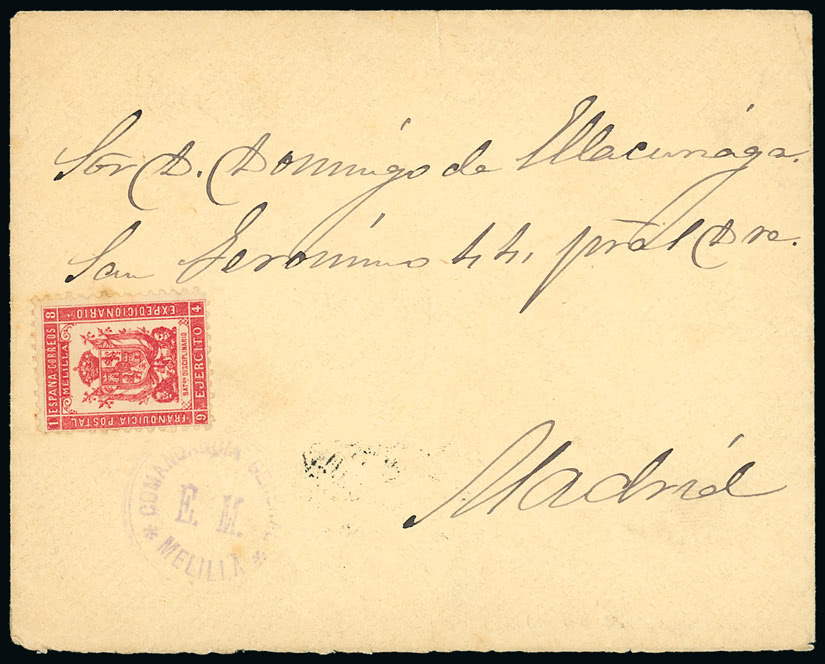 Sor D. Domingo de Ellacuriaga.
San Jerónimo 44, pral Dra.
Madrid
ESPAÑA-CORREOS
MELILLA
EXPEDICIONARIO
FRANQUICIA POSTAL
BATON DISCIPLINARIO
EJERCITO
1 8 9 4
* COMANDANCIA GENERAL *
E. M.
MELILLA